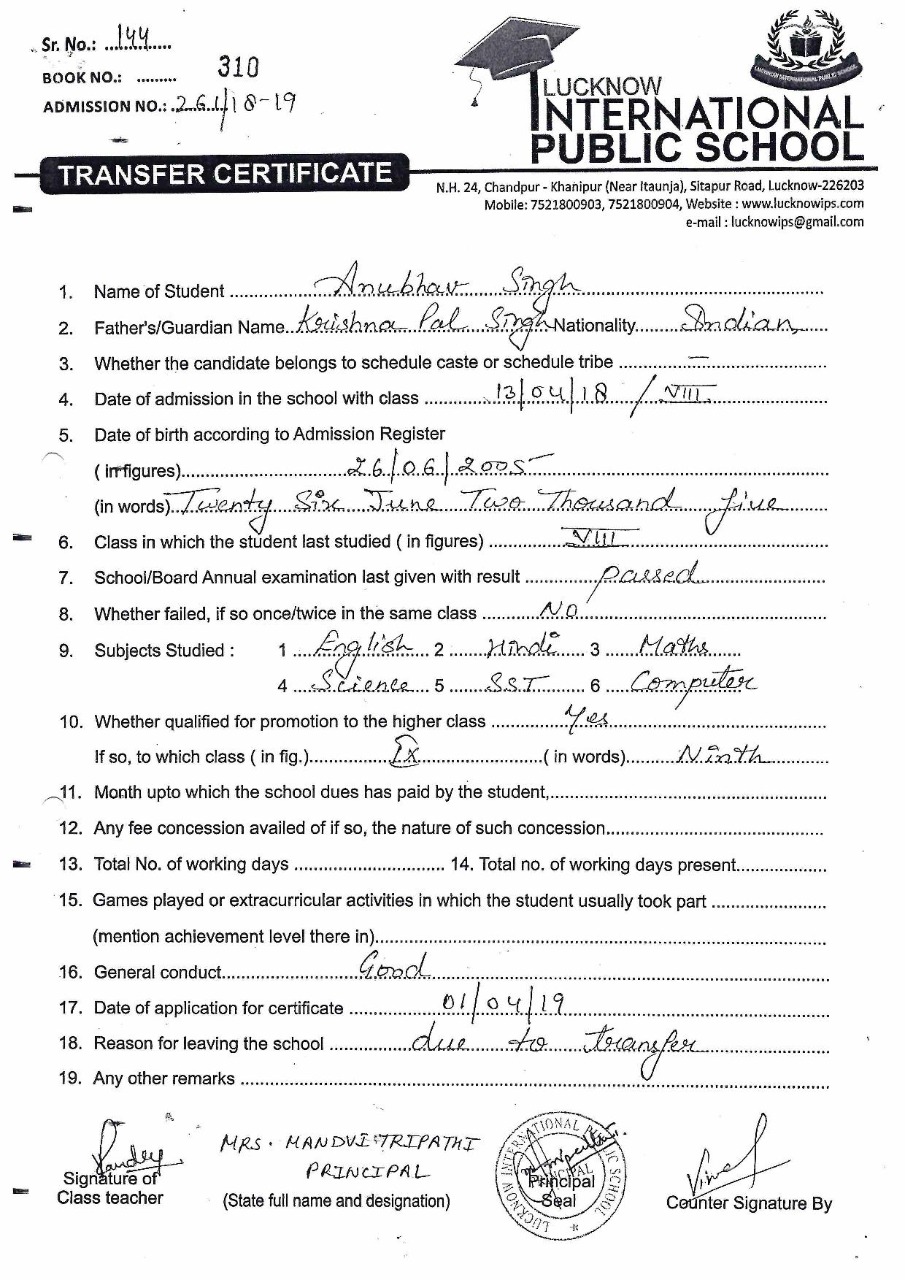 Sr. No.: ...144......
BOOK NO.: ......... 310
ADMISSION NO.: 261/18-19
LUCKNOW
INTERNATIONAL
PUBLIC SCHOOL
LUCKNOW INTERNATIONAL PUBLIC SCHOOL
TRANSFER CERTIFICATE
N.H. 24, Chandpur - Khanipur (Near Itaunja), Sitapur Road, Lucknow-226203
Mobile: 7521800903, 7521800904, Website : www.lucknowips.com
e-mail : lucknowips@gmail.com
1. Name of Student ........ Anubhav Singh ........
2. Father's/Guardian Name.. Krishna Pal Singh Nationality........ Indian ......
3. Whether the candidate belongs to schedule caste or schedule tribe ........ — ........
4. Date of admission in the school with class ........ 13/04/18 / VIII ........
5. Date of birth according to Admission Register
( in figures)........ 26/06/2005 ........
(in words).. Twenty Six June Two Thousand five ........
6. Class in which the student last studied ( in figures) ........ VIII ........
7. School/Board Annual examination last given with result ........ passed ........
8. Whether failed, if so once/twice in the same class ........ NO ........
9. Subjects Studied : 1 .... English ... 2 ........ Hindi ...... 3 ...... Maths ......
4 .... Science ... 5 ........ SST ........ 6 .... Computer
10. Whether qualified for promotion to the higher class ........ Yes ........
If so, to which class ( in fig.)........ IX ........( in words)........ Ninth ........
11. Month upto which the school dues has paid by the student,........
12. Any fee concession availed of if so, the nature of such concession........
13. Total No. of working days ........ 14. Total no. of working days present........
15. Games played or extracurricular activities in which the student usually took part ........
(mention achievement level there in)........
16. General conduct........ Good ........
17. Date of application for certificate ........ 01/04/19 ........
18. Reason for leaving the school ........ due to transfer ........
19. Any other remarks ........
Pandey
Signature of
Class teacher
MRS. MANDVI TRIPATHI
PRINCIPAL
(State full name and designation)
LUCKNOW INTERNATIONAL PUBLIC SCHOOL
PRINCIPAL
Principal
Seal
Counter Signature By